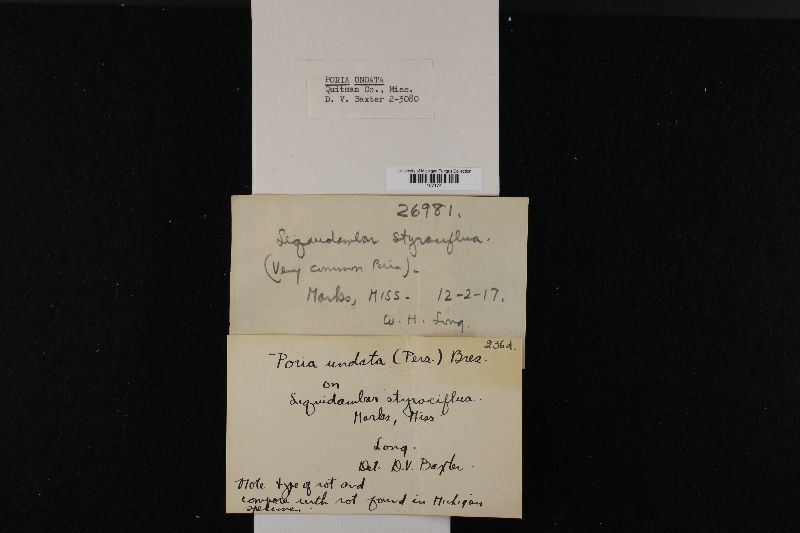 PORIA UNDATA
Quitman Co., Miss.
D. V. Baxter 2-3080
University of Michigan Fungus Collection
26981.
Liquidambar styraciflua.
(Very common Poria).
Marks, Miss. 12-2-17.
W. H. Long.
236d.
Poria undata (Pers.) Bres.
on
Liquidambar styraciflua.
Marks, Miss
Long.
Det. D.V. Baxter.
Note type of rot and
compare with rot found in Michigan
specimen.